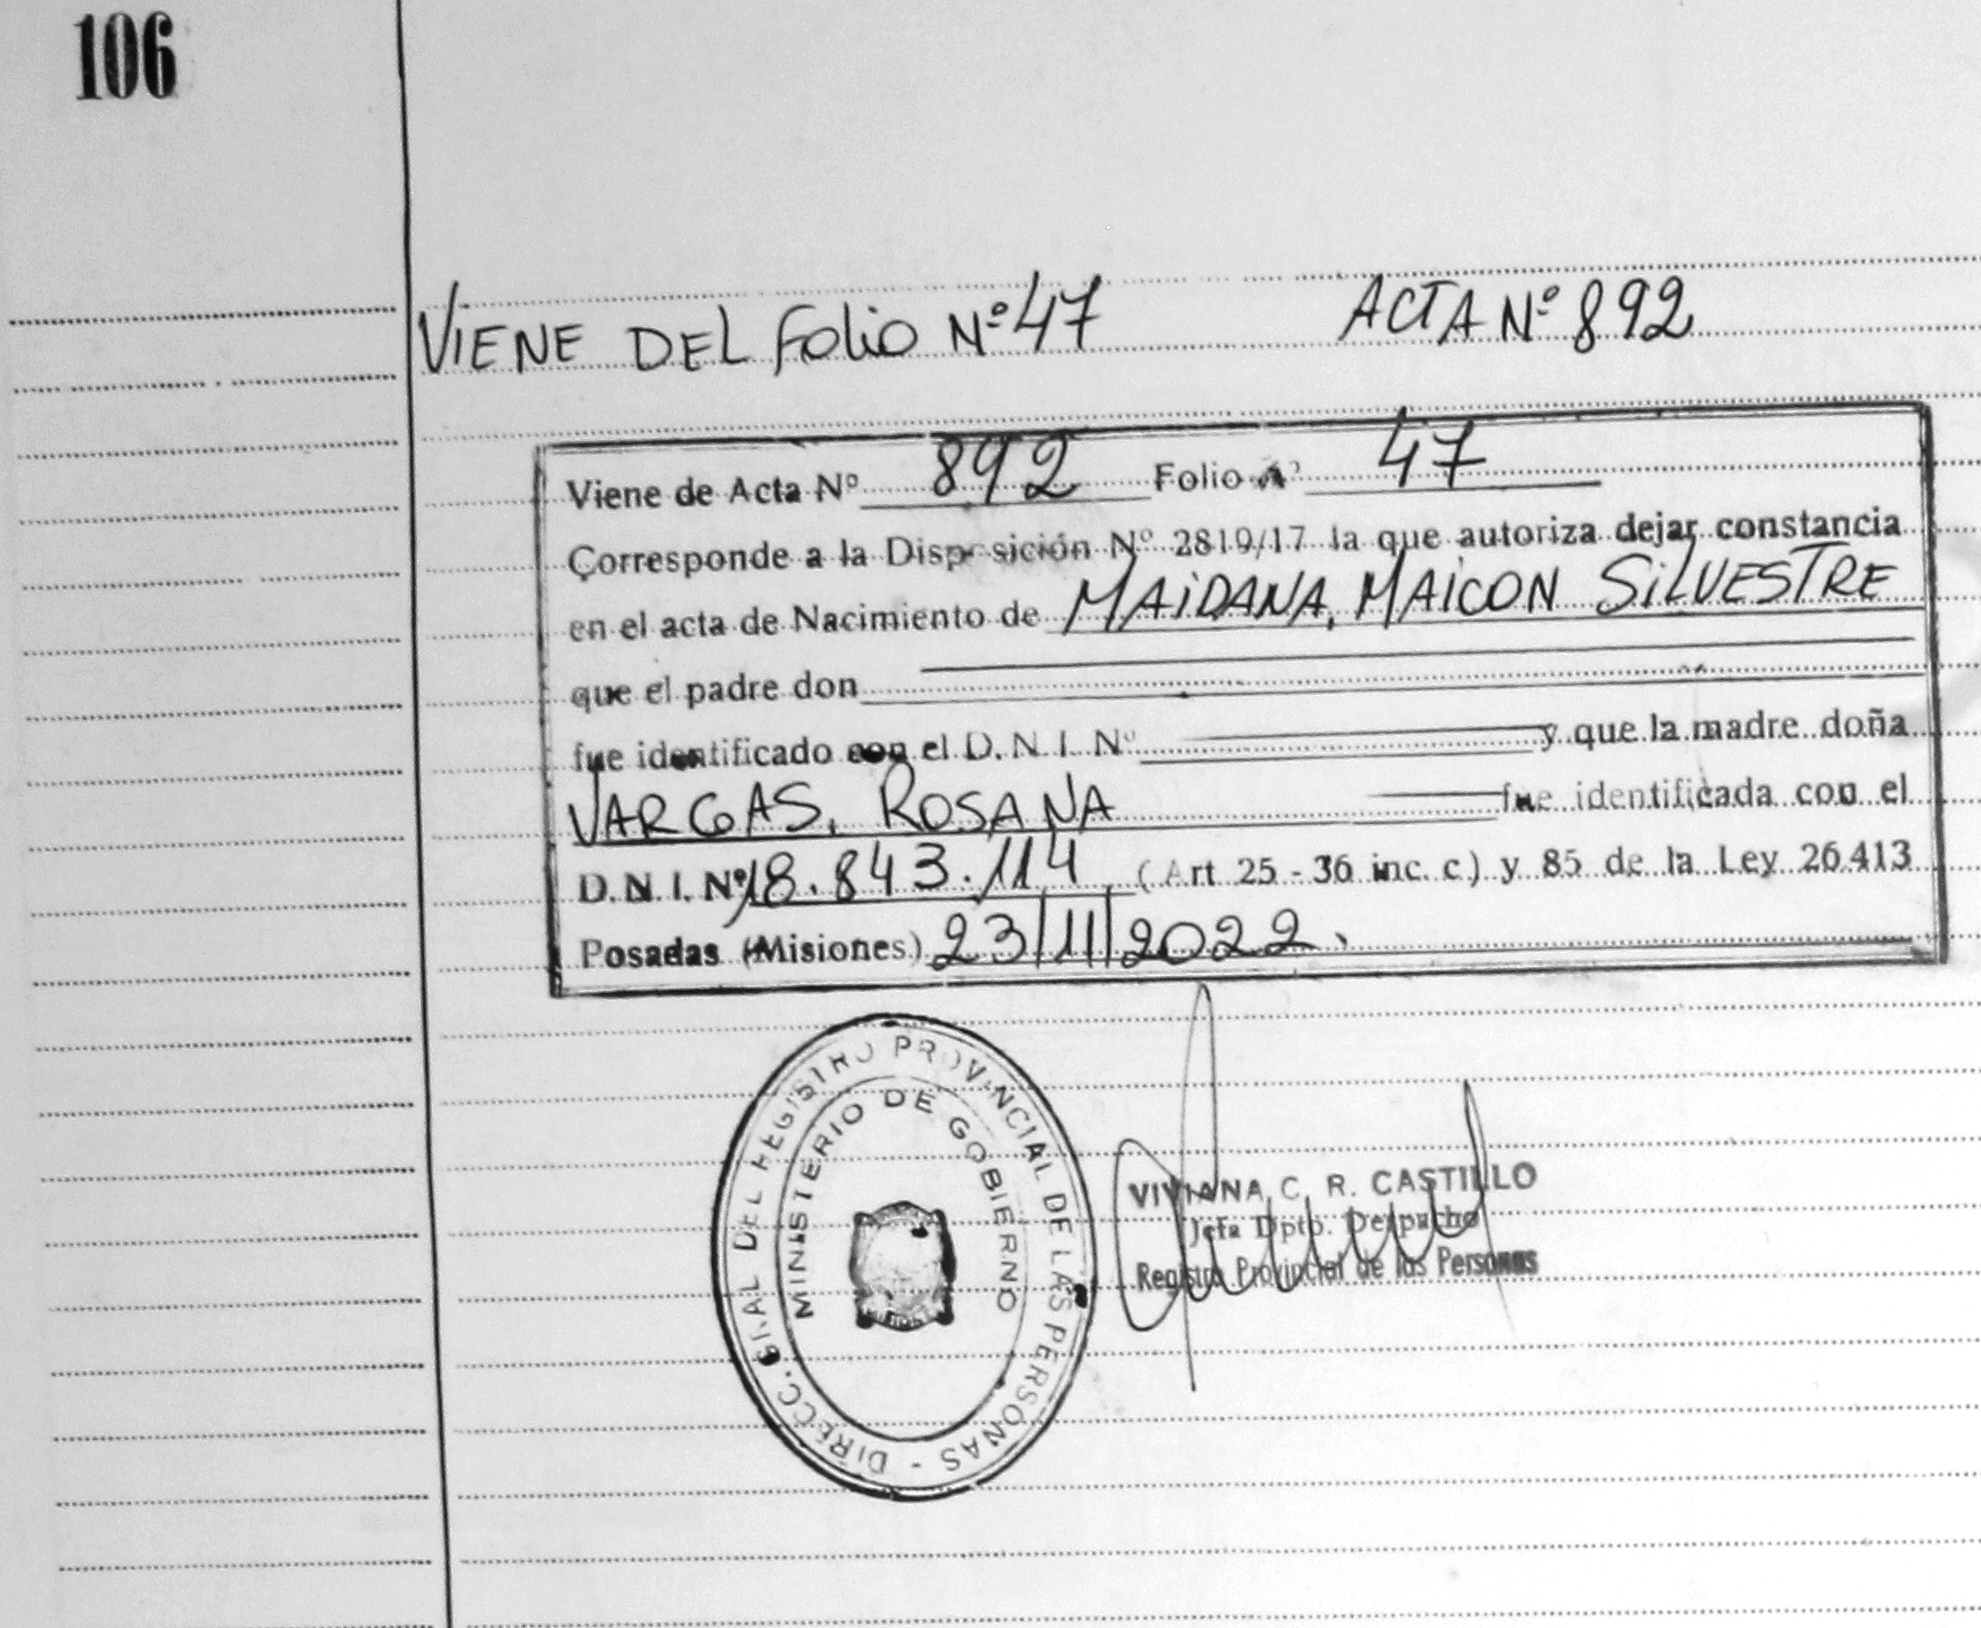 106
VIENE DEL FOLIO Nº 47 ACTA Nº 892
Viene de Acta Nº 892 Folio Nº 47
Corresponde a la Disposición Nº 2819/17 la que autoriza dejar constancia
en el acta de Nacimiento de MAIDANA, MAICON SILVESTRE
que el padre don
fue identificado con el D. N. I. Nº y que la madre doña
VARGAS, ROSANA fue identificada con el
D. N. I. Nº 18.843.114 (Art 25 - 36 inc. c) y 85 de la Ley 26.413
Posadas (Misiones) 23/11/2022.
DIRECC. GRAL DEL REGISTRO PROVINCIAL DE LAS PERSONAS -
MINISTERIO DE GOBIERNO
VIVIANA C. R. CASTILLO
Jefa Dpto. Despacho
Registro Provincial de las Personas